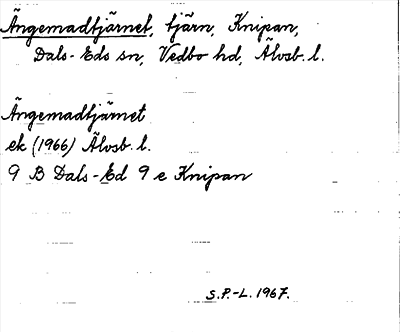 Ängemadtjärnet, tjärn, Knipan,
Dals-Eds sn, Vedbo hd, Älvsb. l.
Ängemadtjärnet
ek (1966) Älvsb. l.
9 B Dals-Ed 9 e Knipan
S.P.-L. 1967.